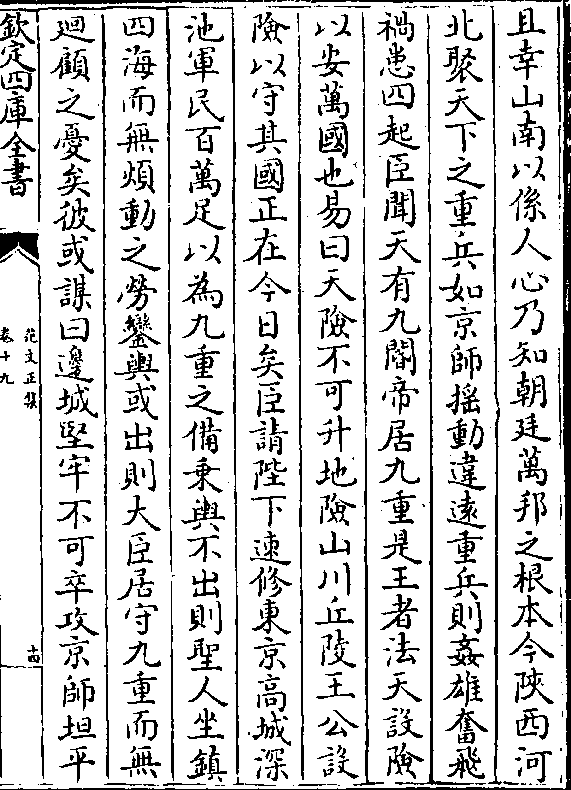 且幸山南以係人心乃知朝廷萬邦之根本今陜西河
北聚天下之重兵如京師揺動違遠重兵則姦雄奮飛
禍患四起臣聞天有九閽帝居九重是王者法天設險
以安萬國也易曰天險不可升地險山川丘陵王公設
險以守其國正在今日矣臣請陛下速修東京高城深
池軍民百萬足以為九重之備乗輿不出則聖人坐鎮
四海而無煩動之勞鑾輿或出則大臣居守九重而無
廻顧之憂矣彼或謀曰邊城堅牢不可卒攻京師坦平
欽定四庫全書
范文正集
卷十九
十四